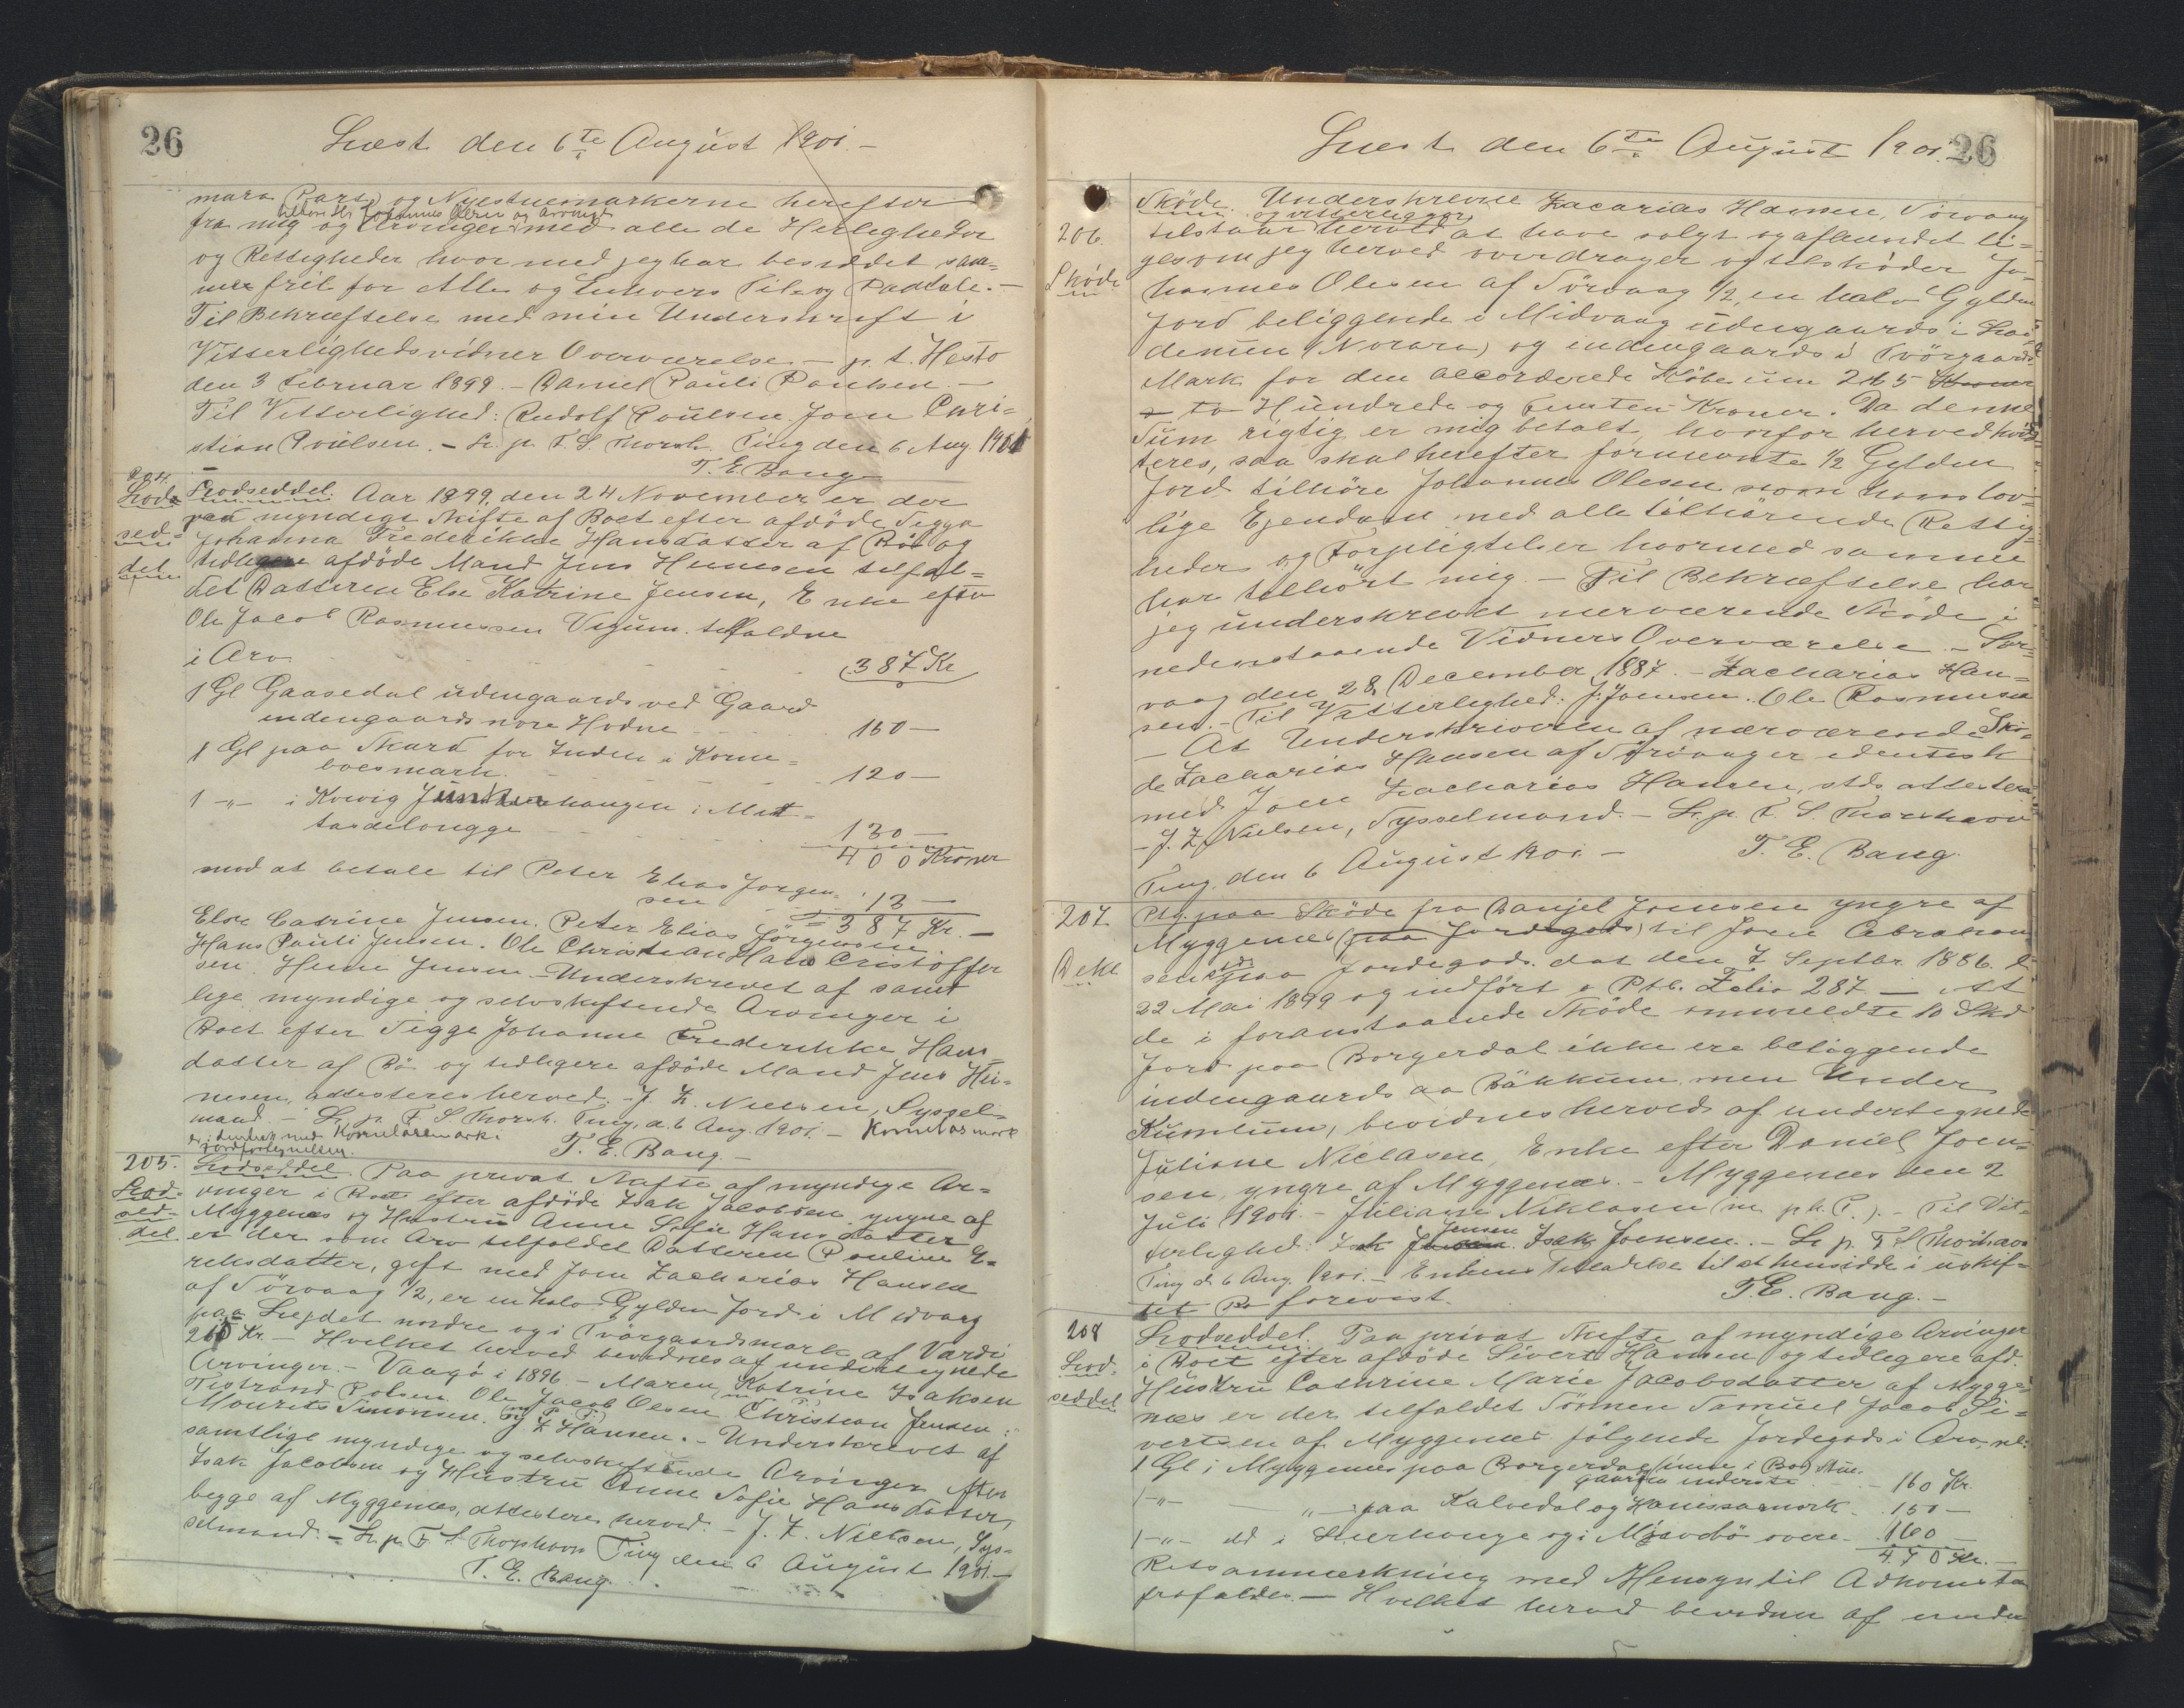 26
Læst den 6te August 1901.-
mara (Pars) og Nyestuemarkerne herefter
fra mig og Arvinger med alle de Herligheder
og Rettigheder hvor med jeg har besiddet sam=
me frit for Alles og Enhvers Til og Paatale.-
Til Bekræftelse med min Underskrift i
Vitterlighedsvidners Overværelse - p. t. Hesto
den 3 Februar 1899. - Daniel Pauli Poulsen. -
Til Vitterlighed: Rudolf Poulsen. Joen Chri=
stian Poulsen. - Lr. p. F. S. Thorsh. Ting den 6 Aug. 1901
T. E. Bang
204.
Lods
sed=
del
Lodseddel. Aar 1899, den 24 November er der
paa myndigt Skifte af Boet efter afdøde Sigga
Johanna Frederikke Hansdatter af Bö og
tidligere afdøde Mand Jens Hennesen tilfal=
det Datteren Else Katrine Jensen, Enke efter
Ole Jacob Rasmussen Vigum. tilfaldne
i Arv
387 Kr
1 Gl Gaasedal udengaards ved Gaard
indengaards nore Hodne 150 -
1 Gl paa Skard for Inden i Korne=
boesmark. 120 -
1 -"- i Kvivig Junkerhaugen i Mitt=
tardelongge 130 -
400 Kroner
mod at betale til Peter Elias Jørgen=
sen 13 -
= 387 Kr. -
Else Catrine Jensen. Peter Elias Jörgensen.
Hans Pauli Jensen. Ole Christian Hans Cristoffer
sen. Henne Jensen - Underskrevet af samt
lige myndige og selvskiftende Arvinger i
Boet efter Sigge Johanne Frederikke Hans=
datter af Bö og tidligere afdøde Mand Jens Hen=
nesen, attesteres herved. - J. Z. Nielsen, Syssel=
mand. - Lr. p. F. S. Thorsh. Ting, d. 6 Aug. 1901. - Kornebøs mark
er identisk med Kornebøsmark i
Jordfortegnelsen.
T. E. Bang. -
205.
Lod=
sed=
del
Lodseddel. Paa privat Skifte af myndige Ar=
vinger i Boet efter afdøde Isak Jacobsen yngre af
Myggenæs og Hustru Anne Sofie Hansdatter
er der som Arv tilfaldet Datteren Pauline E=
reksdatter, gift med Joen Zacharias Hansen
af Sörvaag 1/2, er en halv Gylden Jord i Midvaag
paa Leydet nordre og i Tvørgaardsmark af Værdi
215 Kr. - Hvilket herved bevidnes af undertegnede
Arvinger. - Vaagö i 1896 - Maren Katrine Isaksen
Testrand Polsen Ole Jacob Olsen. Christian Jensen:
Mourits Simonsen. J Z Hansen. - Underskrevet af
samtlige myndige og selvskiftende Arvinger efter
Isak Jacobsen og Hustru Anne Sofie Hansdatter,
begge af Myggenæs, attesteres herved. - J. Z. Nielsen, Sys=
selmand. - Lr. p. F. S. Thorshavn Ting den 6 August 1901. -
T. E. Bang.
26
Læst den 6te August 1901.
206.
Sköde
Sköde. Underskrevne Zacarias Hansen, Sörvaag
tilstaar og vitterliggør herved at have solgt og afhændet li=
gesom jeg herved overdrager og tilsköder Jo=
hannes Olesen af Sörvaag 1/2, en halv Gylden
Jord beliggende i Midvaag udengaards i Lei=
denum (Norara) og indengaards i Tvörgaards
Mark for den accorderede Köbesum 215 Kroner
to Hundrede og femten Kroner. Da denne
Sum rigtig er mig betalt, hvorfor herved kvit=
teres, saa skal herefter formeldte 1/2 Gylden
Jord tilhöre Johannes Olesen som hans lov=
lige Ejendom med alle tilhörende Rettig=
heder og Forpligtelser hvormed samme
har tilhört mig. - Til Bekræftelse har
jeg underskrevet nærværende Sköde i
nedenstaaende Vidners Overværelse - Sör=
vaag den 28 December 1887. - Zacharias Han=
sen. - Til Vitterlighed: J. Joensen. Ole Rasmussen
- At Underskriveren af nærværende Skö=
de Zacharias Hansen af Sörvaag er identisk
med Joen Zacharias Hansen, stds attesteres
- J. Z Nielsen, Sysselmand. - Lr. p. F. S. Thorshavn
Ting. den 6 August 1901. -
T. E. Bang.
207
Dekl
Ptg. paa Sköde fra Danjel Joensen yngre af
Myggenæs (paa Jordegods) til Joen Abraham
sen stds paa Jordegods. dat den 7 Septbr. 1886. l.
22 Mai 1899 og indfört i Ptb. Folio 287 - At
de i foranstaaende Sköde ommeldte 10 Skd
Jord paa Borgerdal ikke ere beliggende
indengaards aa Bakkum, men Under
Kumlum, bevidnes herved af undertegnede
Juliane Niclasen, Enke efter Daniel Joen=
sen, yngre af Myggenæs. - Myggenæs den 2
Juli 1901. - Juliane Niklasen (m. p. P.). - Til Vit=
terlighed: Isak Jensen. Isak Joensen. - Lr p. F S Thorshavn
Ting d. 6 Aug. 1901. - Enkens Tilladelse til at hensidde i uskif=
tet Bo forevist.
T. E. Bang. -
208
Lod=
seddel
Lodseddel. Paa privat Skifte af myndige Arvinger
i Boet efter afdøde Sivert Hansen og tidligere afd.
Hustru Cathrine Marie Jacobsdatter af Mygge=
næs er der tilfaldet Sönnen Samuel Jacob Si=
vertsen af Myggenæs følgende Jordegods i Arv, nl:
1 Gl i Myggenæs paa Borgerdal (inne i Bø)
gaarda underste - 160 Kr.
1 -"- -"- paa Kalvedal og Hanissamork. 150 -
1 -"- dd i Lierhauge og i Miavabö overe 160 -
470 Kr. -
Retsanmærkning med Hensyn til Adkomsten
frafaldes. - Hvilket herved bevidnes af under